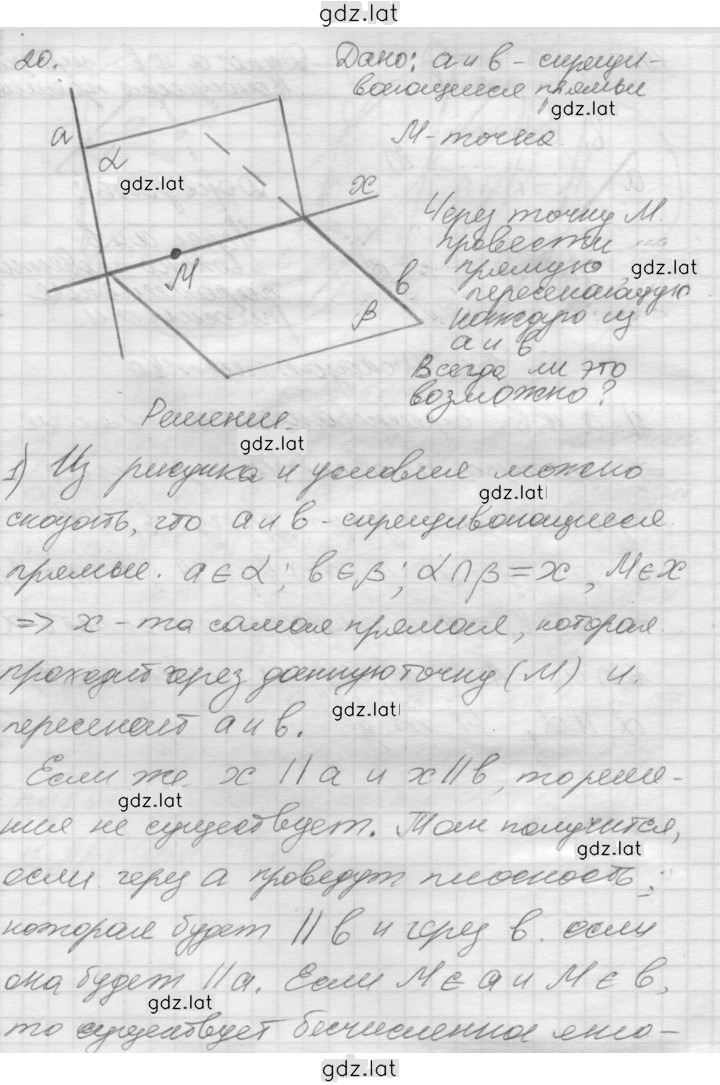 gdz.lat
20.
Дано: a и b - скрещи-
вающиеся прямые
gdz.lat
M - точка.
a
α
gdz.lat
x
M
b
β
Через точку M.
провести
прямую
gdz.lat
пересекающую
каждую из
a и b
Всегда ли это
возможно?
Решение.
gdz.lat
1) Из рисунка и условия можно
gdz.lat
сказать, что a и b - скрещивающиеся
прямые. a ∈ α; b ∈ β; α ∩ β = x, M ∈ x
=> x - та самая прямая, которая
проходит через данную точку (M) и.
gdz.lat
пересекает a и b.
Если же x || a и x || b, то реше-
gdz.lat
ния не существует. Так получится,
gdz.lat
если через a проведут плоскость,
которая будет || b и через b. если
она будет || a. Если M ∈ a и M ∈ b,
gdz.lat
то существует бесчисленное мно-
gdz.lat